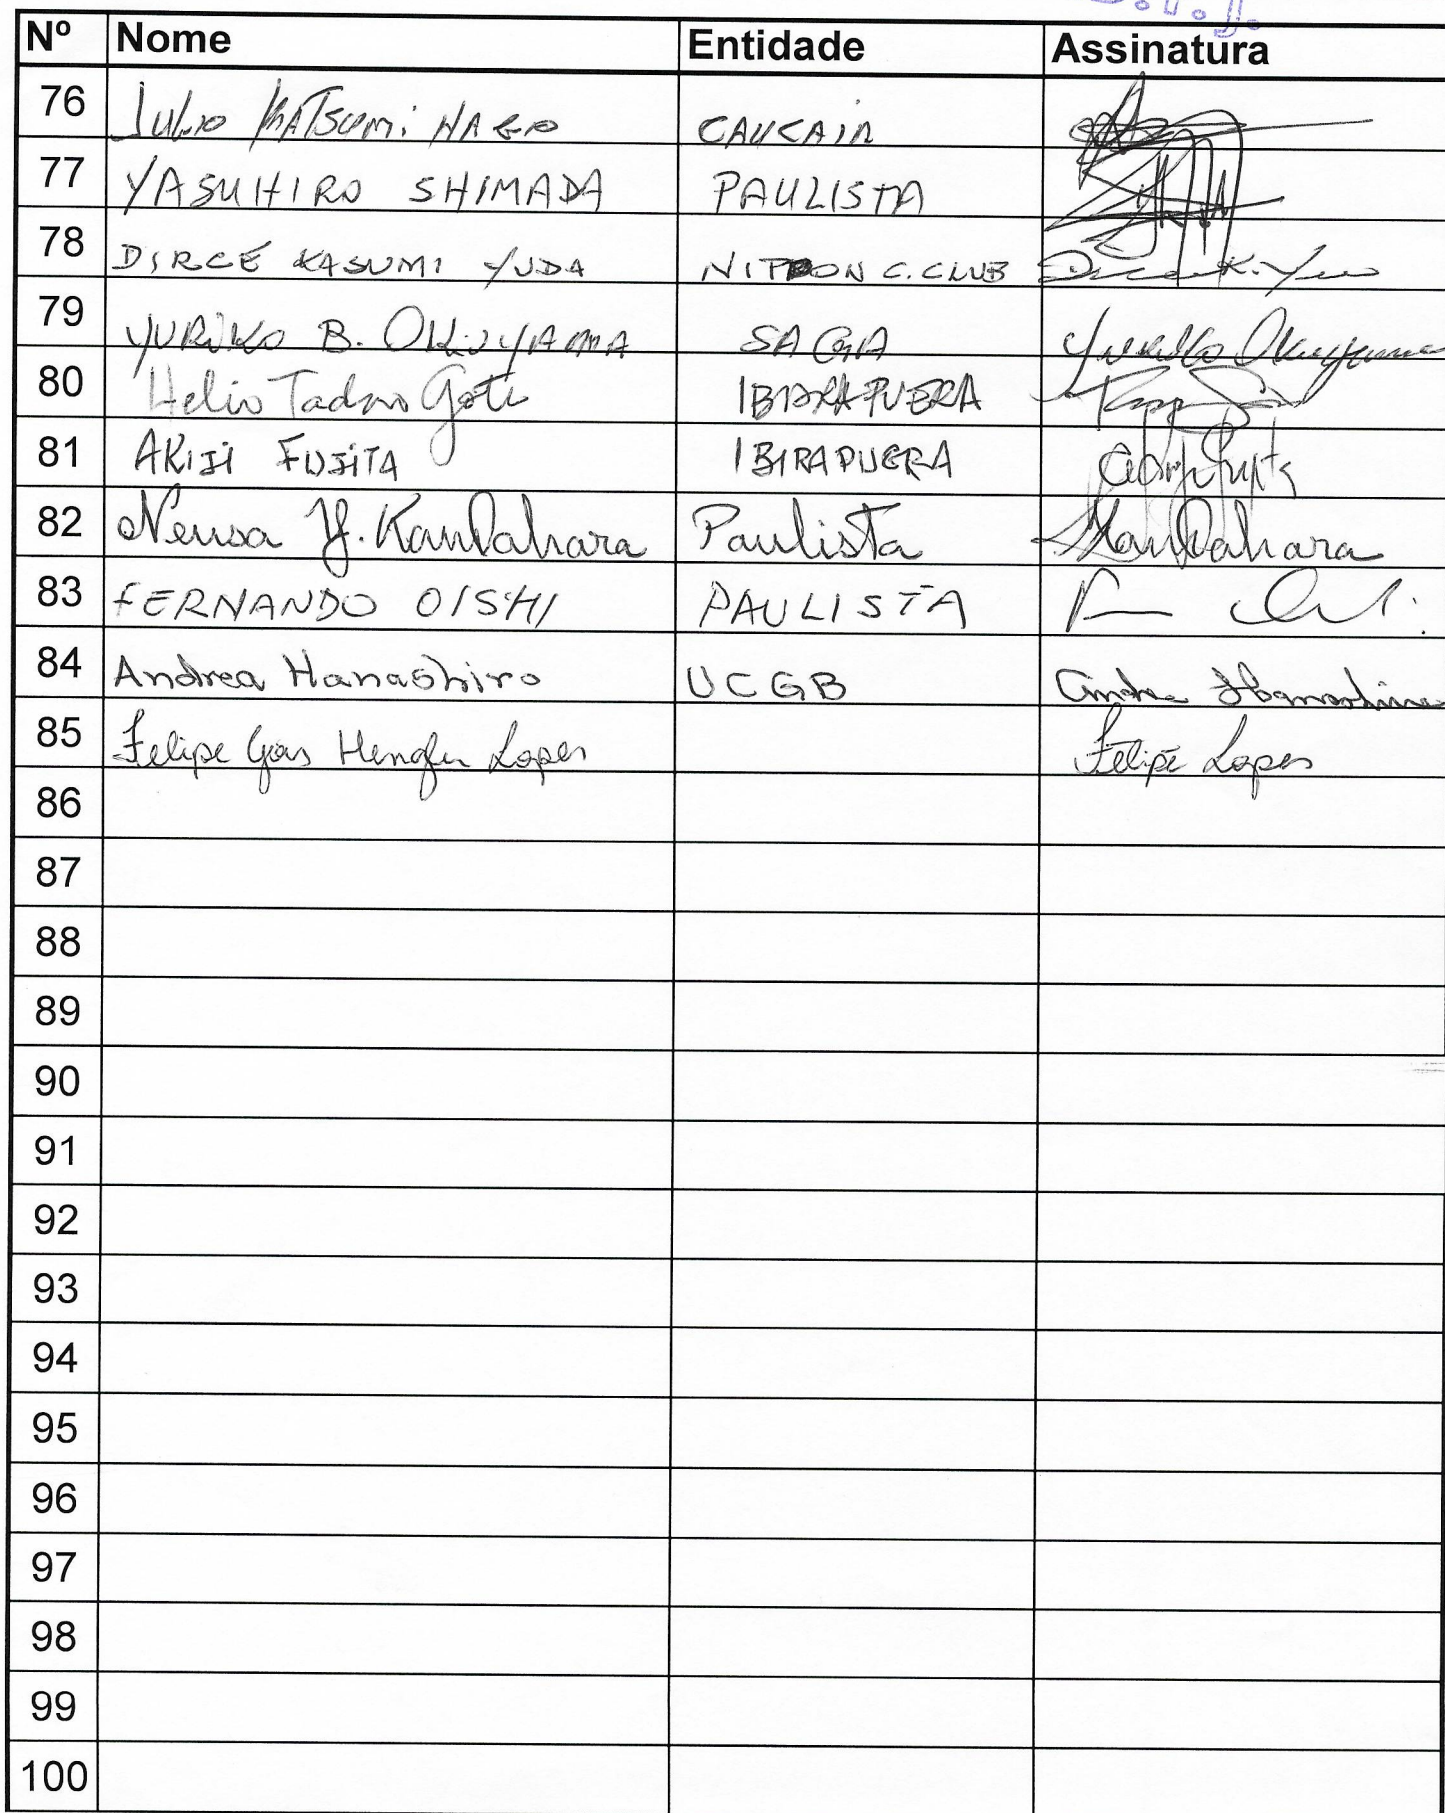 Nº Nome Entidade Assinatura
76 Julio MATSUMI NAGO CAUCAIA
77 YASUHIRO SHIMADA PAULISTA
78 DIRCE KASUMI YUDA NIPPON C. CLUB
79 YURIKO B. OKUYAMA SAGA Yuriko Okuyama
80 Helio Tadao Goto IBIRAPUERA
81 AKIJI FUJITA IBIRAPUERA
82 Neusa Y. Kandahara Paulista Kandahara
83 FERNANDO OISHI PAULISTA
84 Andrea Hanashiro UCGB Andrea Hanashiro
85 Felipe Lopes Felipe Lopes
86
87
88
89
90
91
92
93
94
95
96
97
98
99
100